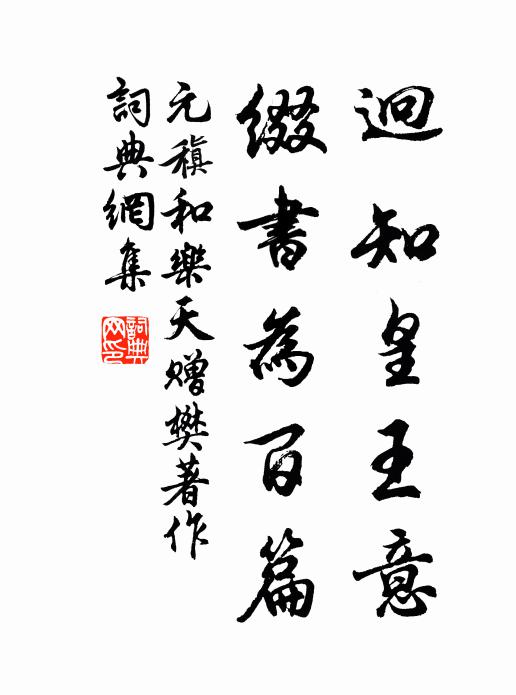 迥知皇王意
綴書為百篇
元稹和樂天贈樊著作
詞典網集
詞典网印